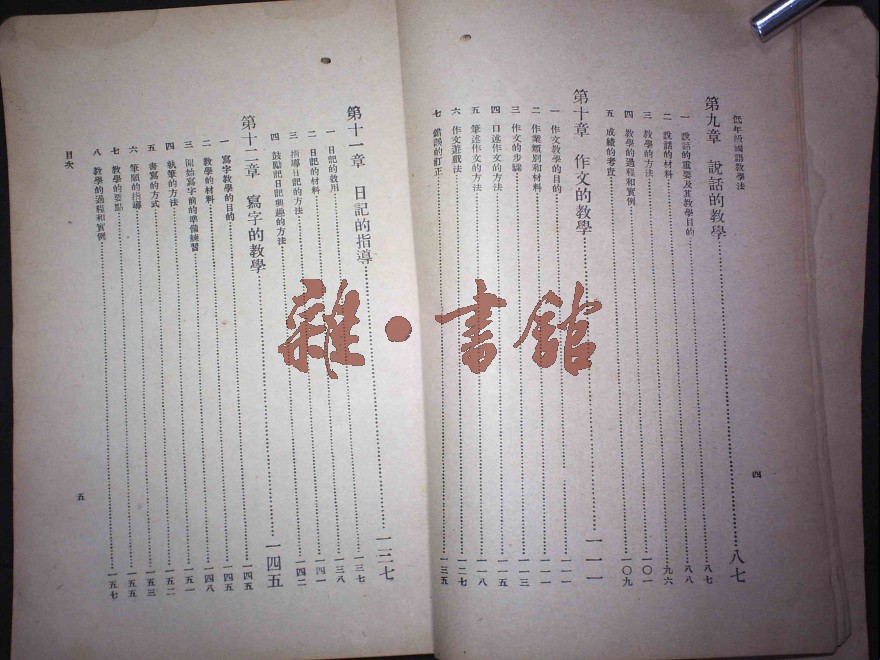 低年級國語教學法
第九章 說話的教學……八七
一 說話的重要及其教學目的……八七
二 說話的材料……八八
三 教學的方法……九六
四 教學的過程和實例……一〇一
五 成績的考查……一〇九
第十章 作文的教學……一一一
一 作文教學的目的……一一一
二 作業類別和材料……一一一
三 作文的步驟……一一三
四 口述作文的方法……一一五
五 筆述作文的方法……一一八
六 作文遊戲法……一二七
七 錯誤的訂正……一三五
四
第十一章 日記的指導……一三七
一 日記的效用……一三七
二 日記的材料……一三八
三 指導日記的方法……一四一
四 鼓勵記日記興趣的方法……一四二
第十二章 寫字的教學……一四五
一 寫字教學的目的……一四五
二 教學的材料……一四五
三 開始寫字前的準備練習……一四八
四 執筆的方法……一五一
五 書寫的方式……一五二
六 筆順的指導……一五三
七 教學的要點……一五五
八 教學的過程和實例……一五七
目次
五
雜·書館